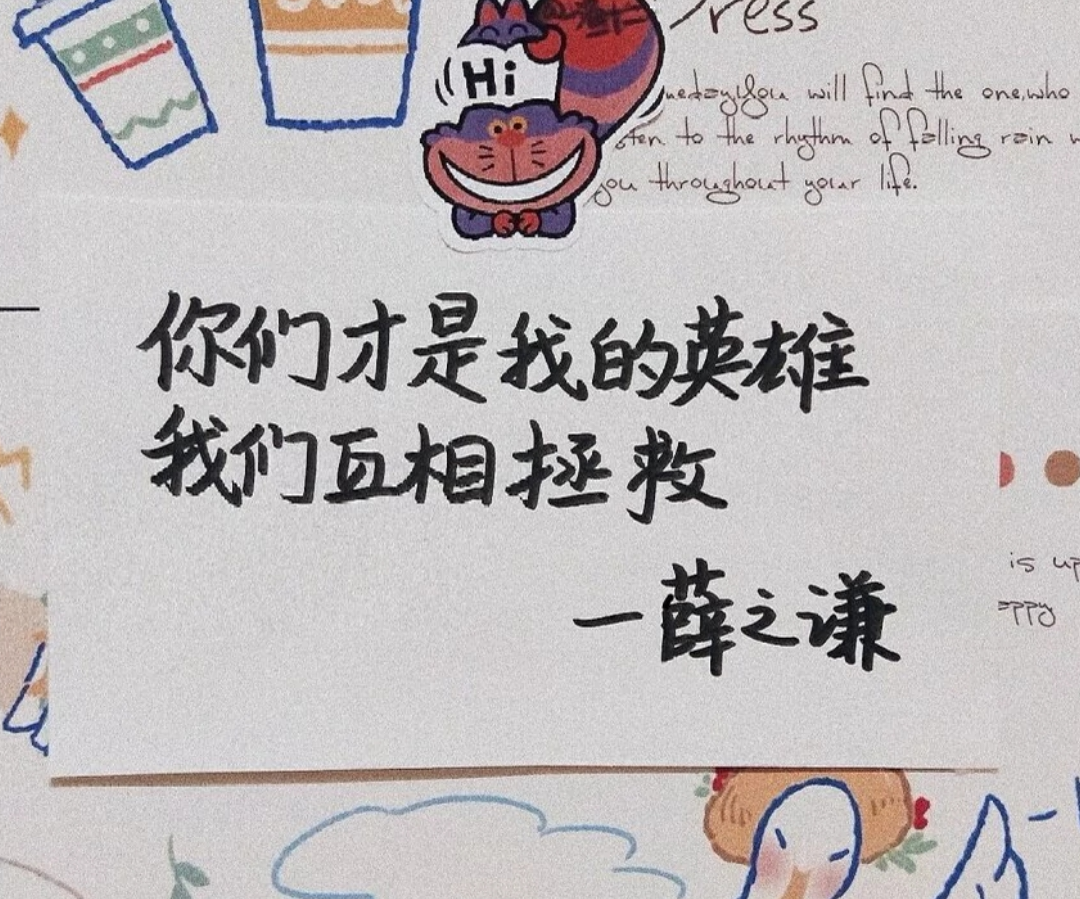 ress
Hi
will find the one,who
to the rhythm of falling rain
you throughout your life.
你们才是我的英雄
我们互相拯救
一薛之谦
is up